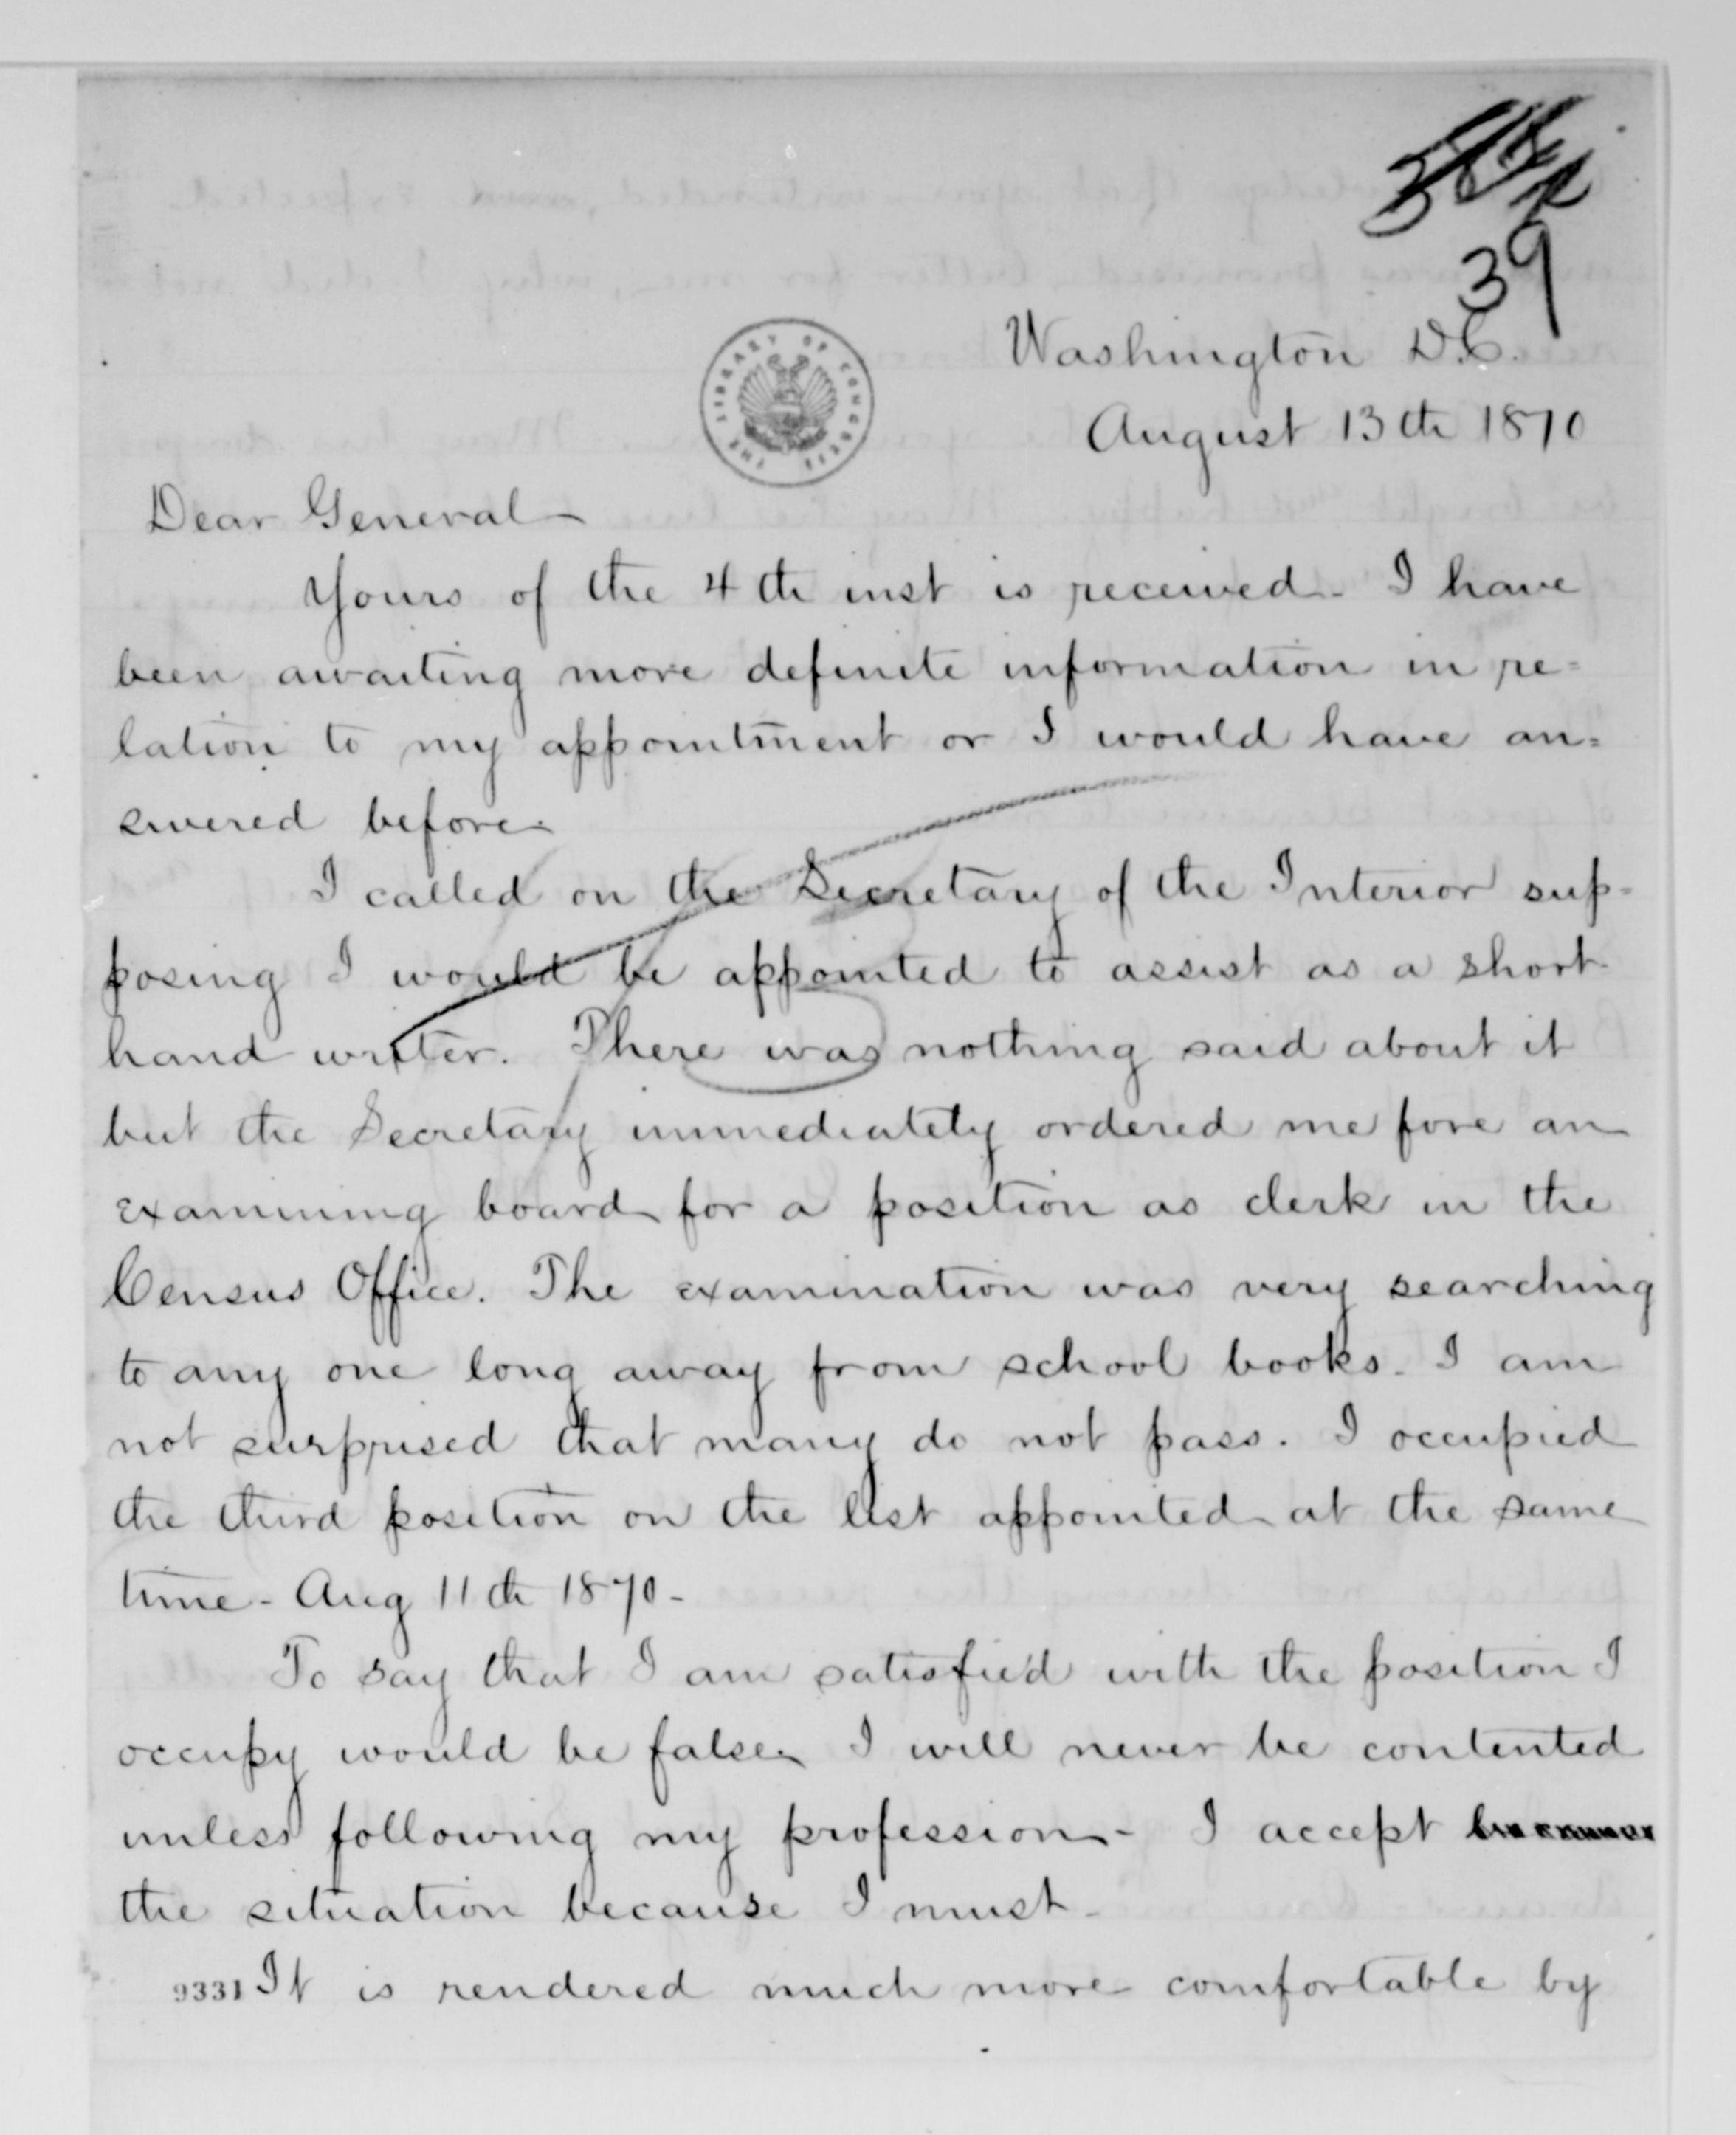 39
Washington D.C.
August 13th 1870
THE LIBRARY OF CONGRESS
Dear General
Yours of the 4th inst is received. I have
been awaiting more definite information in re=
lation to my appointment or I would have an=
swered before.
I called on the Secretary of the Interior sup-
posing I would be appointed to assist as a short
hand writer. There was nothing said about it
but the Secretary immediately ordered me fore an
examining board for a position as clerk in the
Census Office. The examination was very searching
to any one long away from school books. I am
not surprised that many do not pass. I occupied
the third position on the list appointed at the same
time - Aug 11th 1870 -
To say that I am satisfied with the position I
occupy would be false. I will never be contented
unless following my profession - I accept
the situation because I must -
9331 It is rendered much more comfortable by